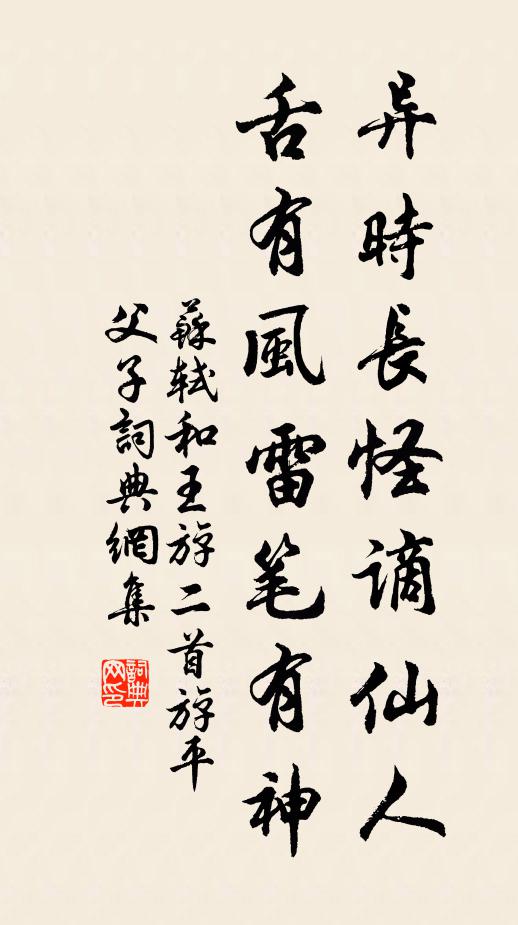 异時長怪謫仙人
舌有風雷笔有神
蘇軾和王斿二首斿平
父子詞典網集
詞典网印